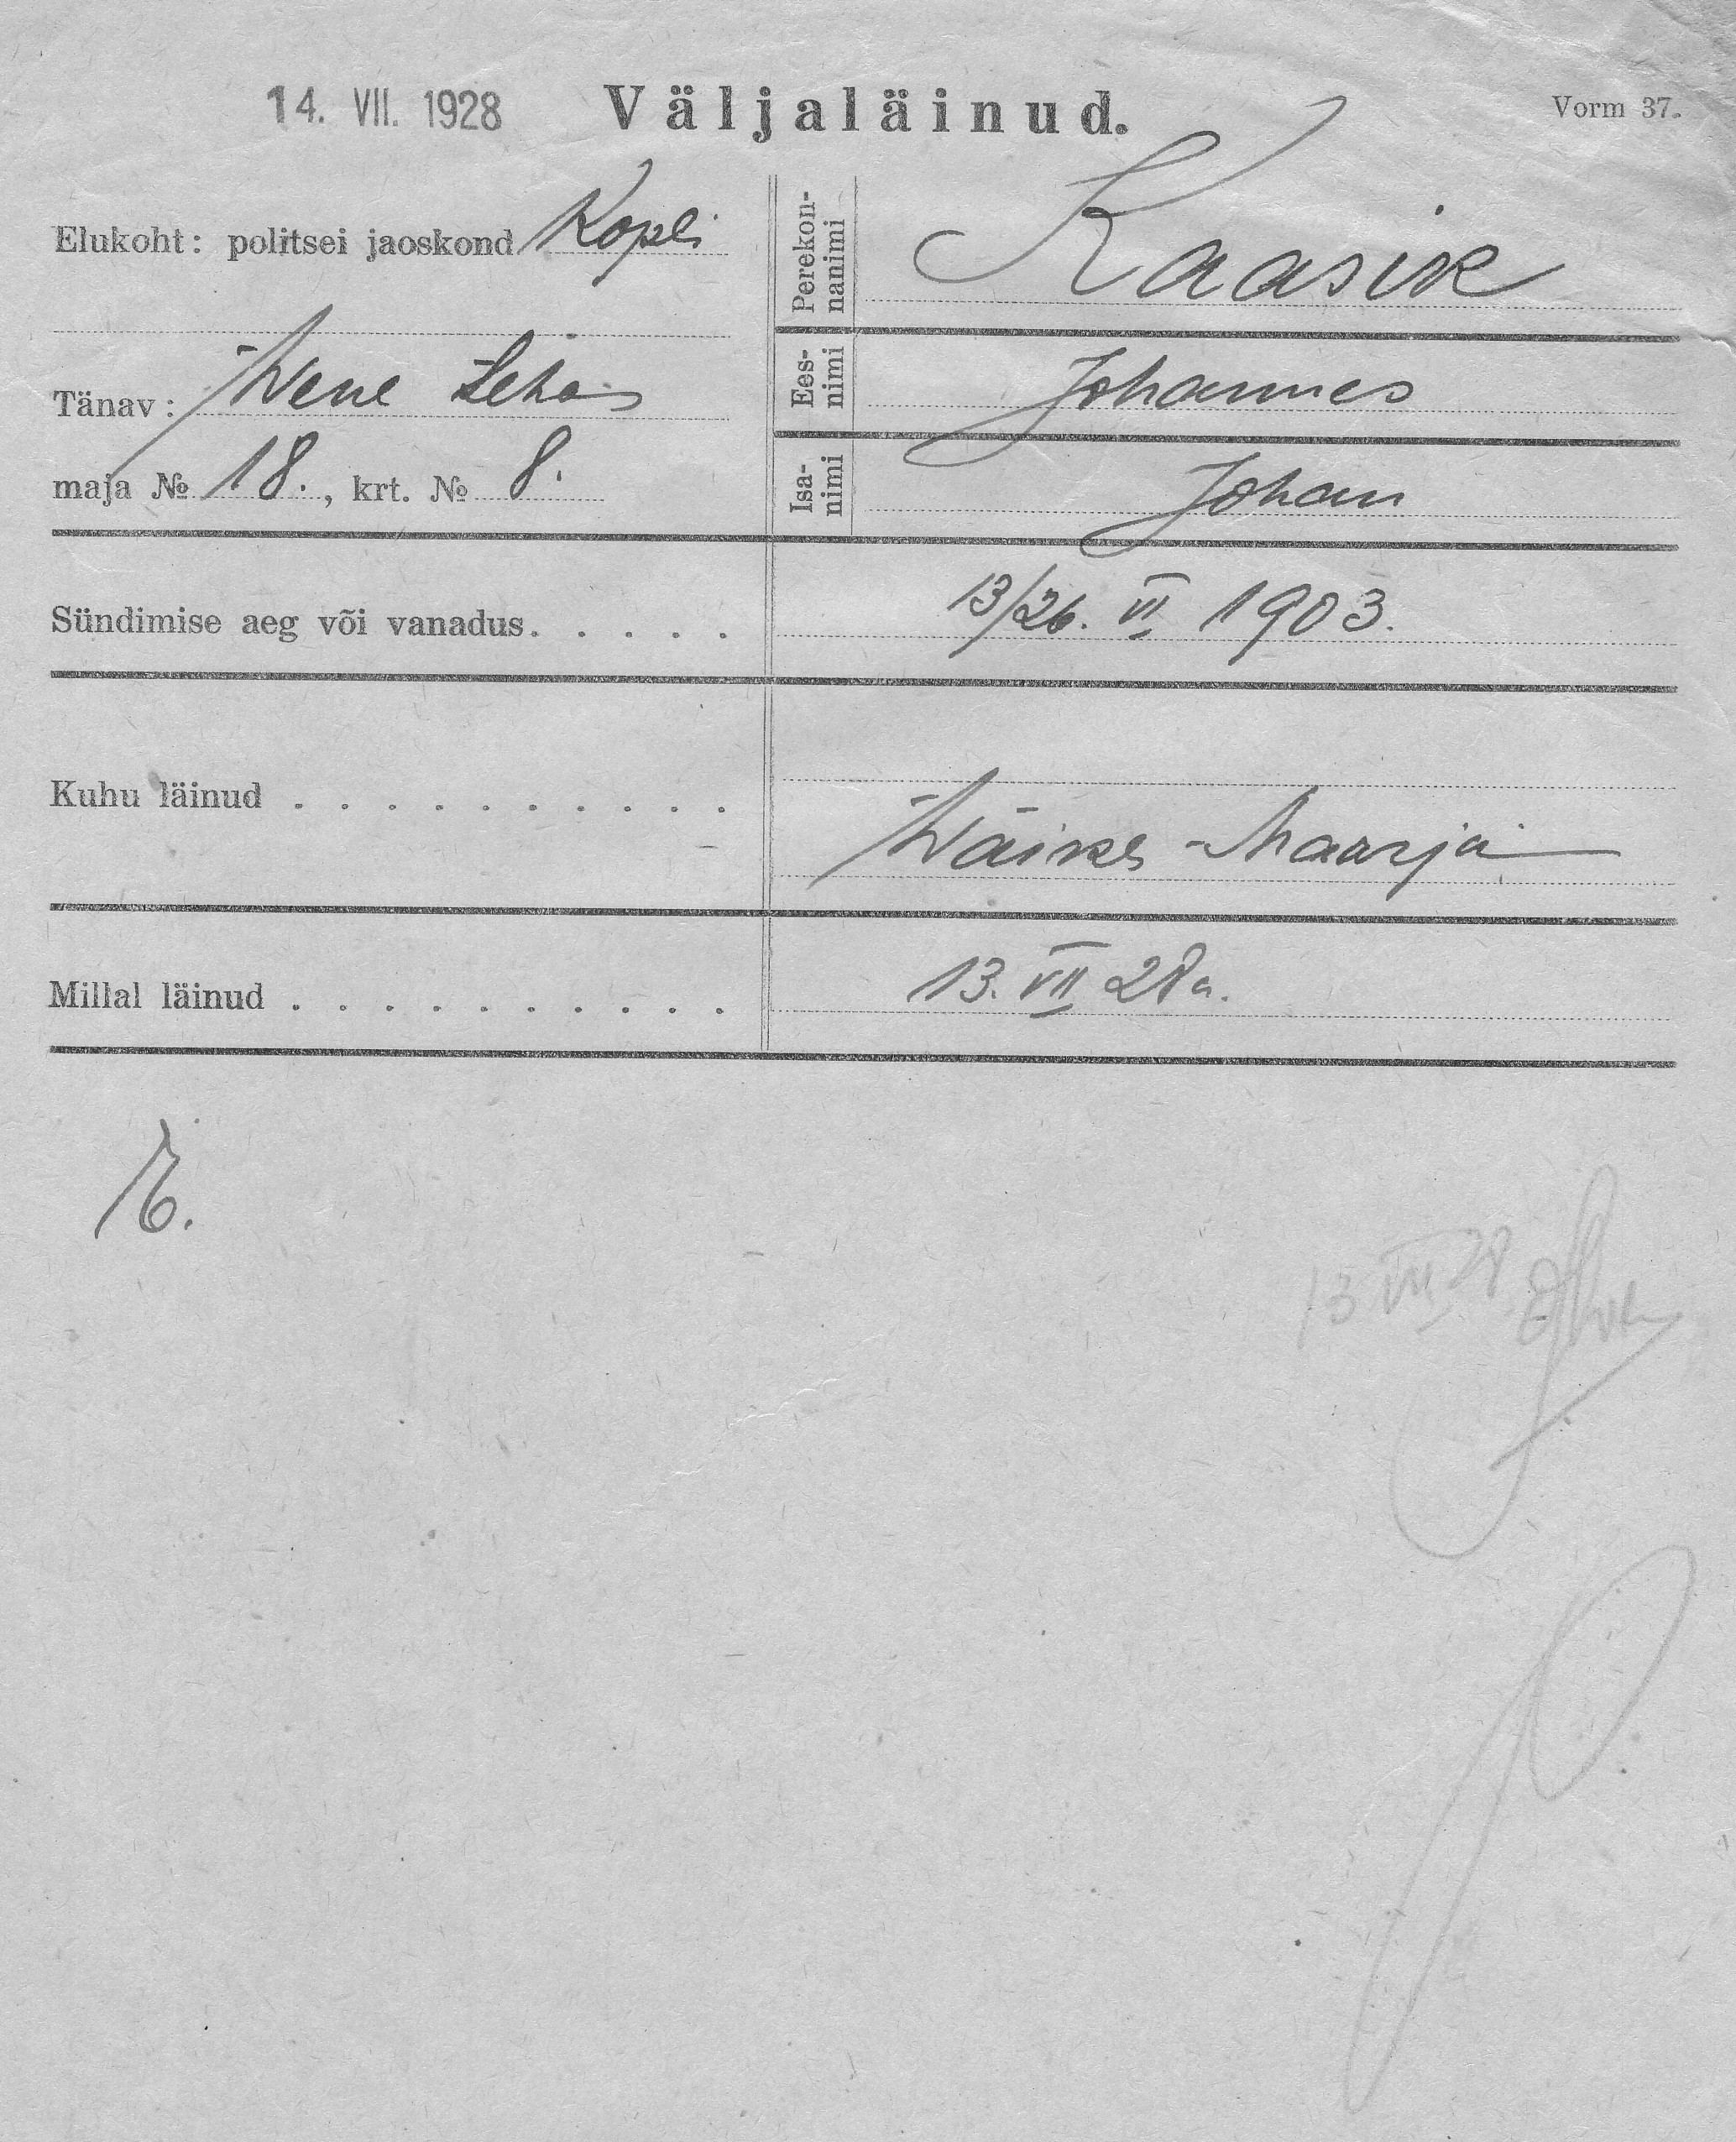 14. VII. 1928 Väljaläinud. Vorm 37.
Elukoht: politsei jaoskond Kopli
Tänav: Wene
maja № 18., krt. № 8.
Perekonnanimi Kaasik
Eesnimi Johannes
Isanimi Johan
Sündimise aeg või vanadus. . . . . 13/26. VI 1903.
Kuhu läinud . . . . . . . . . . Wäike-Maarja
Millal läinud . . . . . . . . . . 13. VII 28 a.
13 VII 28